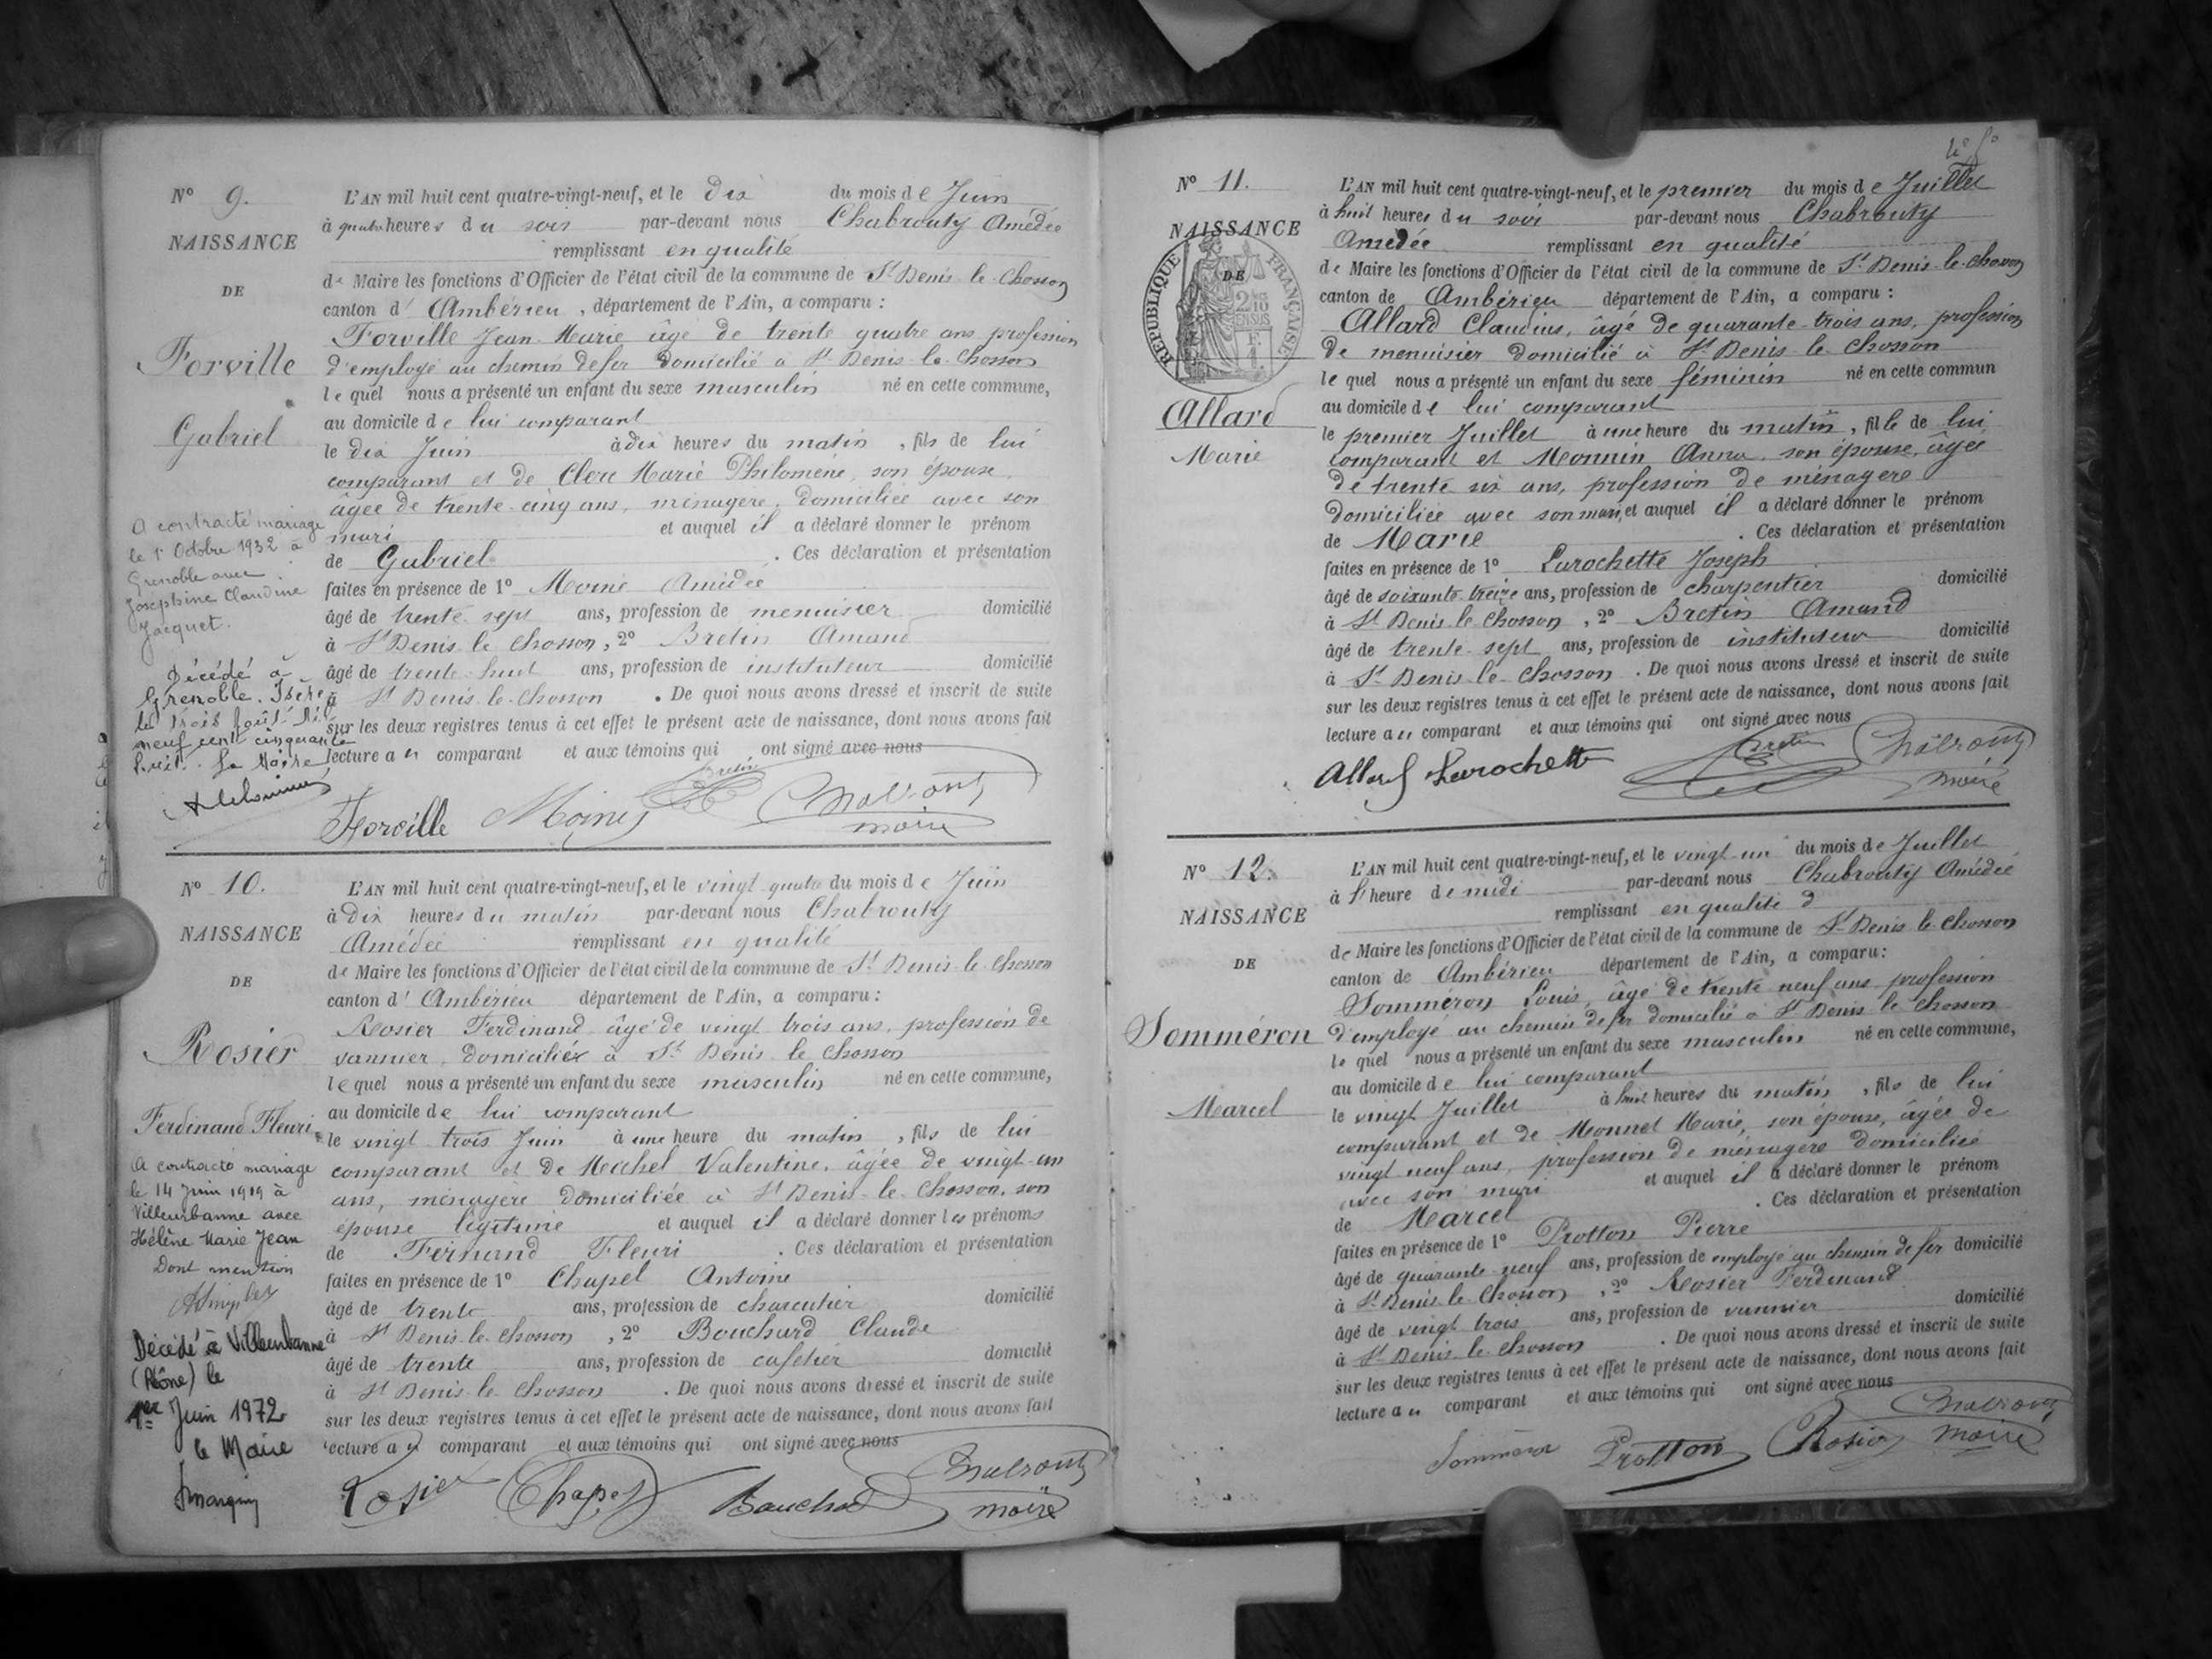 N° 9.
NAISSANCE
DE
Forville
Gabriel
A contracté mariage
le 1er Octobre 1932 à
Grenoble avec
Josephine Claudine
Jacquet.
Décédé à
Grenoble. Isère
le trois Août
neuf cent cinquante
huit. Le Maire
L'AN mil huit cent quatre-vingt-neuf, et le Dix du mois de Juin
à quatre heures du soir par-devant nous Chabrouty Amédée
remplissant en qualité
de Maire les fonctions d'Officier de l'état civil de la commune de St Denis-le-Chosson
canton d' Ambérieu, département de l'Ain, a comparu :
Forville Jean-Marie, âgé de trente quatre ans, profession
d'employé au chemin de fer domicilié à St Denis-le-Chosson
lequel nous a présenté un enfant du sexe masculin né en cette commune,
au domicile de lui comparant
le dix Juin à dix heures du matin, fils de lui
comparant et de Clerc Marie Philomène, son épouse,
âgée de trente-cinq ans, ménagère, domiciliée avec son
mari et auquel il a déclaré donner le prénom
de Gabriel. Ces déclaration et présentation
faites en présence de 1° Moine Amédée
âgé de trente sept ans, profession de menuisier domicilié
à St Denis-le-Chosson, 2° Bretin Amand
âgé de trente-huit ans, profession de instituteur domicilié
à St Denis-le-Chosson. De quoi nous avons dressé et inscrit de suite
sur les deux registres tenus à cet effet le présent acte de naissance, dont nous avons fait
lecture au comparant et aux témoins qui ont signé avec nous
Bretin
Forville Moine Chabrouty
maire
N° 10.
NAISSANCE
DE
Rosier
Ferdinand Fleuri
A contracté mariage
le 14 Juin 1919 à
Villeurbanne avec
Hélène Marie Jean
Dont mention
Décédé à Villeurbanne
(Rhône) le
1er Juin 1972
Le Maire
L'AN mil huit cent quatre-vingt-neuf, et le vingt-quatre du mois de Juin
à Dix heures du matin par-devant nous Chabrouty
Amédée remplissant en qualité
de Maire les fonctions d'Officier de l'état civil de la commune de St Denis-le-Chosson
canton d' Ambérieu département de l'Ain, a comparu :
Rosier Ferdinand âgé de vingt trois ans, profession de
vannier, domicilié à St Denis le Chosson
lequel nous a présenté un enfant du sexe masculin né en cette commune,
au domicile de lui comparant
le vingt trois Juin à une heure du matin, fils de lui
comparant et de Michel Valentine, âgée de vingt-un
ans, ménagère domiciliée à St Denis-le-Chosson, son
épouse légitime et auquel il a déclaré donner les prénoms
de Fernand Fleuri. Ces déclaration et présentation
faites en présence de 1° Chapel Antoine
âgé de trente ans, profession de charcutier domicilié
à St Denis-le-Chosson, 2° Bouchard Claude
âgé de trente ans, profession de cafetier domicilié
à St Denis-le-Chosson. De quoi nous avons dressé et inscrit de suite
sur les deux registres tenus à cet effet le présent acte de naissance, dont nous avons fait
lecture au comparant et aux témoins qui ont signé avec nous
Rosier Chapel Bouchard Chabrouty
maire
N° 11.
NAISSANCE
DE
RÉPUBLIQUE FRANÇAISE
Allard
Marie
L'AN mil huit cent quatre-vingt-neuf, et le premier du mois de Juillet
à huit heures du soir par-devant nous Chabrouty
Amédée remplissant en qualité
de Maire les fonctions d'Officier de l'état civil de la commune de St Denis-le-Chosson
canton de Ambérieu département de l'Ain, a comparu :
Allard Claudius, âgé de quarante-trois ans, profession
de menuisier domicilié à St Denis-le-Chosson
lequel nous a présenté un enfant du sexe féminin né en cette commun
au domicile de lui comparant
le premier Juillet à une heure du matin, fille de lui
comparant et Monnin Anna, son épouse, âgée
de trente six ans, profession de ménagère
domiciliée avec son mari, et auquel il a déclaré donner le prénom
de Marie. Ces déclaration et présentation
faites en présence de 1° Larochette Joseph
âgé de soixante treize ans, profession de charpentier domicilié
à St Denis-le-Chosson, 2° Bretin Amand
âgé de trente-sept ans, profession de instituteur domicilié
à St Denis-le-Chosson. De quoi nous avons dressé et inscrit de suite
sur les deux registres tenus à cet effet le présent acte de naissance, dont nous avons fait
lecture au comparant et aux témoins qui ont signé avec nous
Allard Larochette Bretin Chabrouty
maire
N° 12.
NAISSANCE
DE
Somméron
Marcel
L'AN mil huit cent quatre-vingt-neuf, et le vingt-un du mois de Juillet
à l'heure de midi par-devant nous Chabrouty Amédée
remplissant en qualité d
de Maire les fonctions d'Officier de l'état civil de la commune de St Denis-le-Chosson
canton de Ambérieu département de l'Ain, a comparu :
Somméron Louis, âgé de trente neuf ans profession
d'employé au chemin de fer domicilié à St Denis le Chosson
lequel nous a présenté un enfant du sexe masculin né en cette commune,
au domicile de lui comparant
le vingt Juillet à huit heures du matin, fils de lui
comparant et de Monnet Marie, son épouse, âgée de
vingt neuf ans, profession de ménagère domiciliée
avec son mari et auquel il a déclaré donner le prénom
de Marcel. Ces déclaration et présentation
faites en présence de 1° Protton Pierre
âgé de quarante neuf ans, profession de employé au chemin de fer domicilié
à St Denis-le-Chosson, 2° Rosier Ferdinand
âgé de vingt trois ans, profession de vannier domicilié
à St Denis-le-Chosson. De quoi nous avons dressé et inscrit de suite
sur les deux registres tenus à cet effet le présent acte de naissance, dont nous avons fait
lecture au comparant et aux témoins qui ont signé avec nous
Somméron Protton Rosier Chabrouty
maire